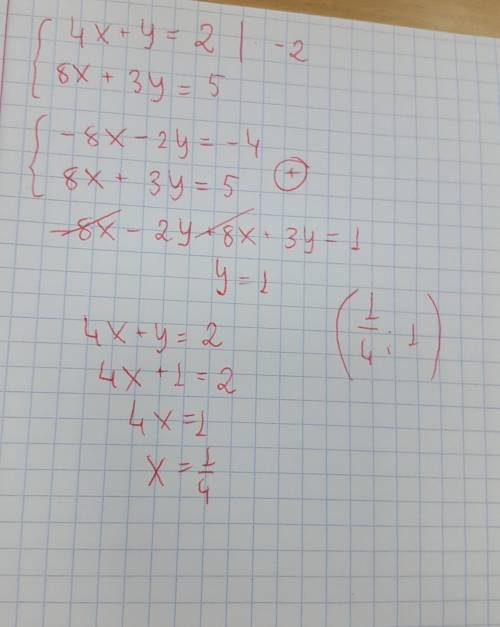 { 4x + y = 2 | · -2
8x + 3y = 5
{ -8x - 2y = -4
8x + 3y = 5 (+)
-8x - 2y + 8x + 3y = 1
y = 1
4x + y = 2
4x + 1 = 2
4x = 1
x = 1/4
(1/4 ; 1)